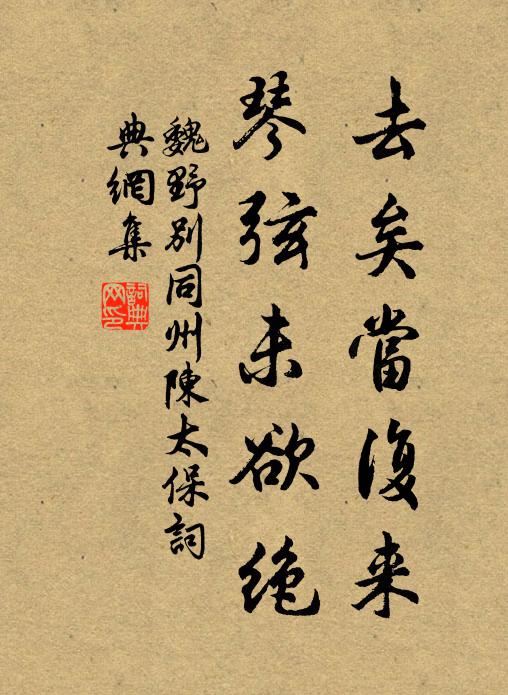 去矣當復来
琴弦未欲绝
魏野别同州陳太保詞
典網集
詞典网印